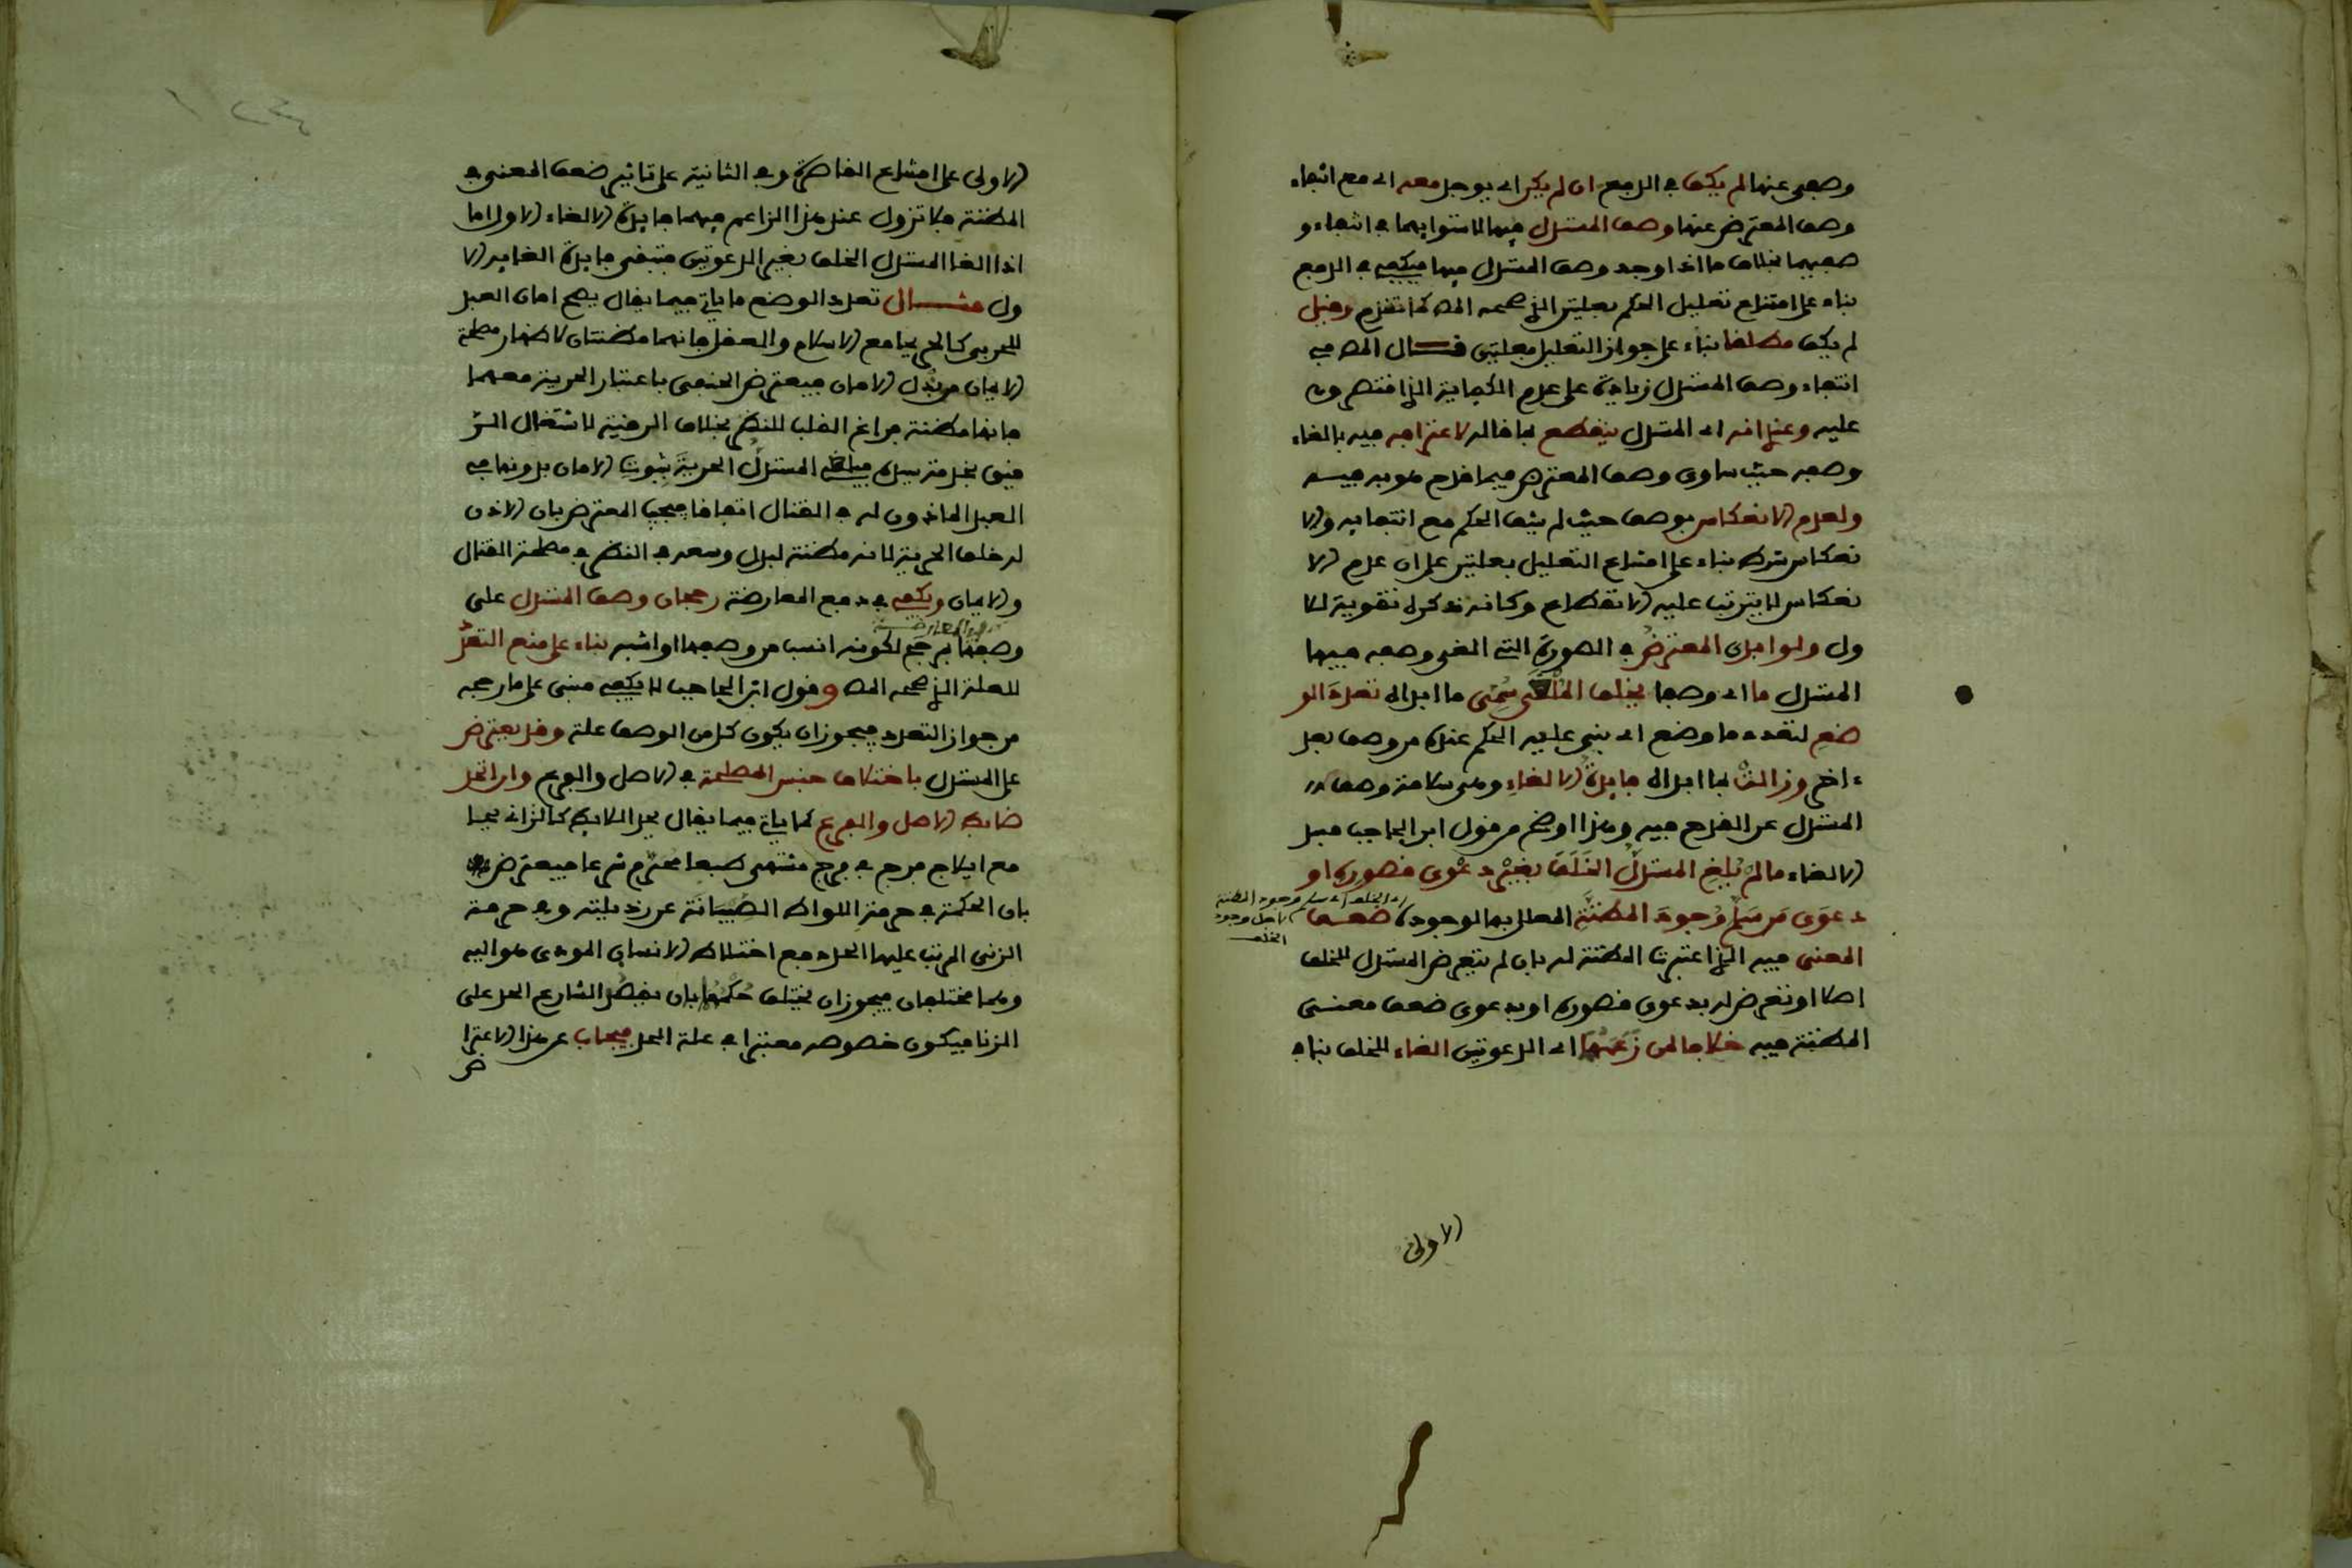 وصفي عنها لم يكف في الدفع ان لم يكن اي يوجد معه اي مع انتفاء
وصف المعترض عنها وصف المستدل فيها لاستوايهما في انتفاء و
صفيهما بخلاف ما اذا وجد وصف المستدل فيها فيكفي في الدفع
بناء على امتناع تعليل الحكم بعلتين الذي صححه المص كما تقدم وقيل
لم يكف مطلقا بناء على جواز التعليل بعلتين قال المص في
انتفاء وصف المستدل زيادة على عدم الكفاية الذي اقتصروا
عليه وعندي انه اي المستدل ينقطع بما قاله لاعترافه فيه بالغاء
وصفه حيث ساوى وصف المعترض فيما قدح هو به فيه
ولعدم الانعكاس لوصفه حيث لم ينتف الحكم مع انتفايه والا
نعكاس شرط بناء على امتناع التعليل بعلتين على ان عدم الا
نعكاس لا يترتب عليه الانقطاع وكانه ذكره تقوية للا
ول ولو ابدى المعترض في الصورة التي الغى وصفه فيها
المستدل ما اي وصفا يخلف الملغى سمي ما ابداه تعدد الو
ضع لتعدد ما وضع اي بني عليه الحكم عنده من وصف بعد
ءاخر وزالت بما ابداه فايدة الالغاء وهي سلامة وصف
المستدل عن القدح فيه وهذا اوضح من قول ابن الحاجب فسد
الالغاء ما لم يلغ المستدل الخلف بغير دعوى قصوره او
دعوى من سلم وجود المظنة المعلل بها لوجود ضعف
اي الخلف اي سلم وجود المظنة
لاجل وجود
الخلف
المعنى فيه الذي اعتبرت المظنة له بان لم يتعرض المستدل للخلف
اصلا او تعرض له بدعوى قصوره او بدعوى ضعف معنى
المظنة فيه خلافا لمن زعمهما اي الدعوتين الغاء للخلف بناء في
الاولى
الاولى على امتناع القاصرة وفي الثانية على تاثير ضعف المعنى في
المظنة فلا تزول عند هذا الزاعم فيهما فايدة الالغاء الاول اما
اذا الغا المستدل الخلف بغير الدعوتين فتبقى فايدة الغايه الا
ول مثال تعدد الوضع ما ياتي فيما يقال يصح امان العبد
للحربي كالحر بجامع الاسلام والعقل فانهما مظنتان لاظهار مصلحة
الايمان من بذل الامان فيعترض الحنفي باعتبار الحرية معهما
فانها مظنة فراغ القلب للنظر بخلاف الرقية لاشتغال الر
قيق بخدمة سيده فيلغي المستدل الحرية بثبوت الامان بدونها في
العبد الماذون له في القتال اتفاقا فيجيب المعترض بان الاذن
له خلف الحرية لانه مظنة لبذل وسعه في النظر في مصلحة القتال
والايمان ويكفي في دفع المعارضة رجحان وصف المستدل على
وصفها بمرجح لكونه انسب من وصفها او اشبه بناء على منع التعدد
للعلة الذي صححه المص وقول ابن الحاجب لا يكفي مبني على ما رجحه
من جواز التعدد فيجوز ان يكون كل من الوصف علة وقد يعترض
على المستدل باختلاف جنس المصلحة في الاصل والفرع وان اتحد
ضابط الاصل والفرع كما ياتي فيما يقال يحد اللايط كالزاني بجا
مع ايلاج فرج في فرج مشتهى طبعا محرم شرعا فيعترض
بان الحكمة في حرمة اللواط الصيانة عن رذيلته وفي حرمة
الزنى المرتب عليها الحد دفع اختلاط الانساب المودي هو اليه
وهما مختلفان فيجوز ان يختلف حكمهما بان يقصر الشارع الحد على
الزنا فيكون خصوصه معتبرا في علة الحد فيجاب عن هذا الاعترا
ض